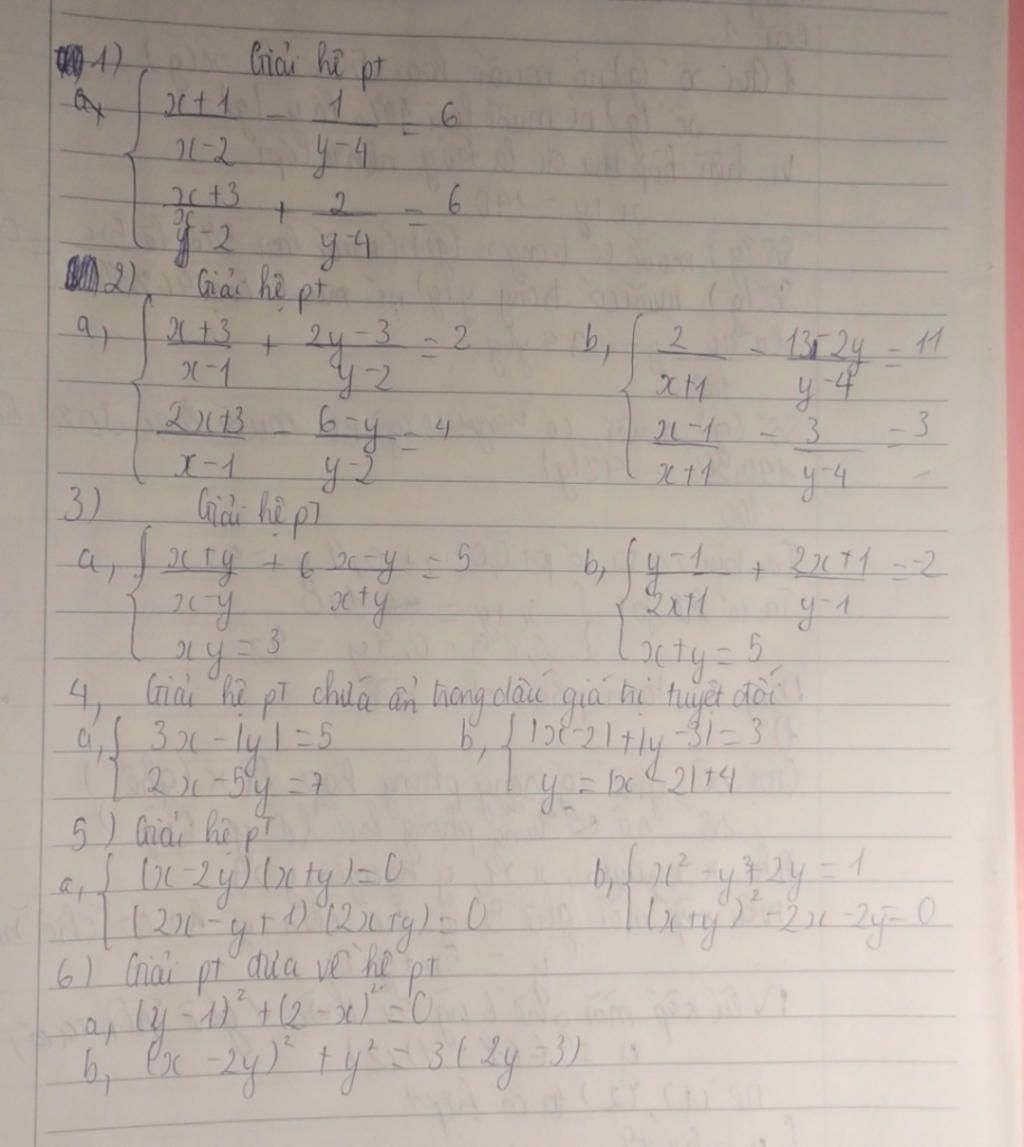 1) Giải hệ pt
a, { (x+1)/(x-2) - 1/(y-4) = 6
(x+3)/(x-2) + 2/(y-4) = 6
2) Giải hệ pt
a, { (x+3)/(x-1) + (2y-3)/(y-2) = 2 b, { 2/(x+1) - (13-2y)/(y-4) = 11
(2x+3)/(x-1) - (6-y)/(y-2) = 4 (x-1)/(x+1) - 3/(y-4) = 3
3) Giải hệ pT
a, { (x+y)/(x-y) + 6 (x-y)/(x+y) = 5 b, { (y-1)/(2x+1) + (2x+1)/(y-1) = -2
xy = 3 x+y = 5
4, Giải hệ pT chứa ẩn trong dấu giá trị tuyệt đối
a, { 3x - |y| = 5 b, { |x-2| + |y-3| = 3
2x - 5y = 7 y = |x-2| + 4
5) Giải hệ pT
a, { (x-2y)(x+y) = 0 b, { x² - y² + 2y = 1
(2x-y+1)(2x+y) = 0 (x+y)² - 2x - 2y = 0
6) Giải pt đưa về hệ pt
a, (y-1)² + (2-x)² = 0
b, (x-2y)² + y² = 3(2y-3)